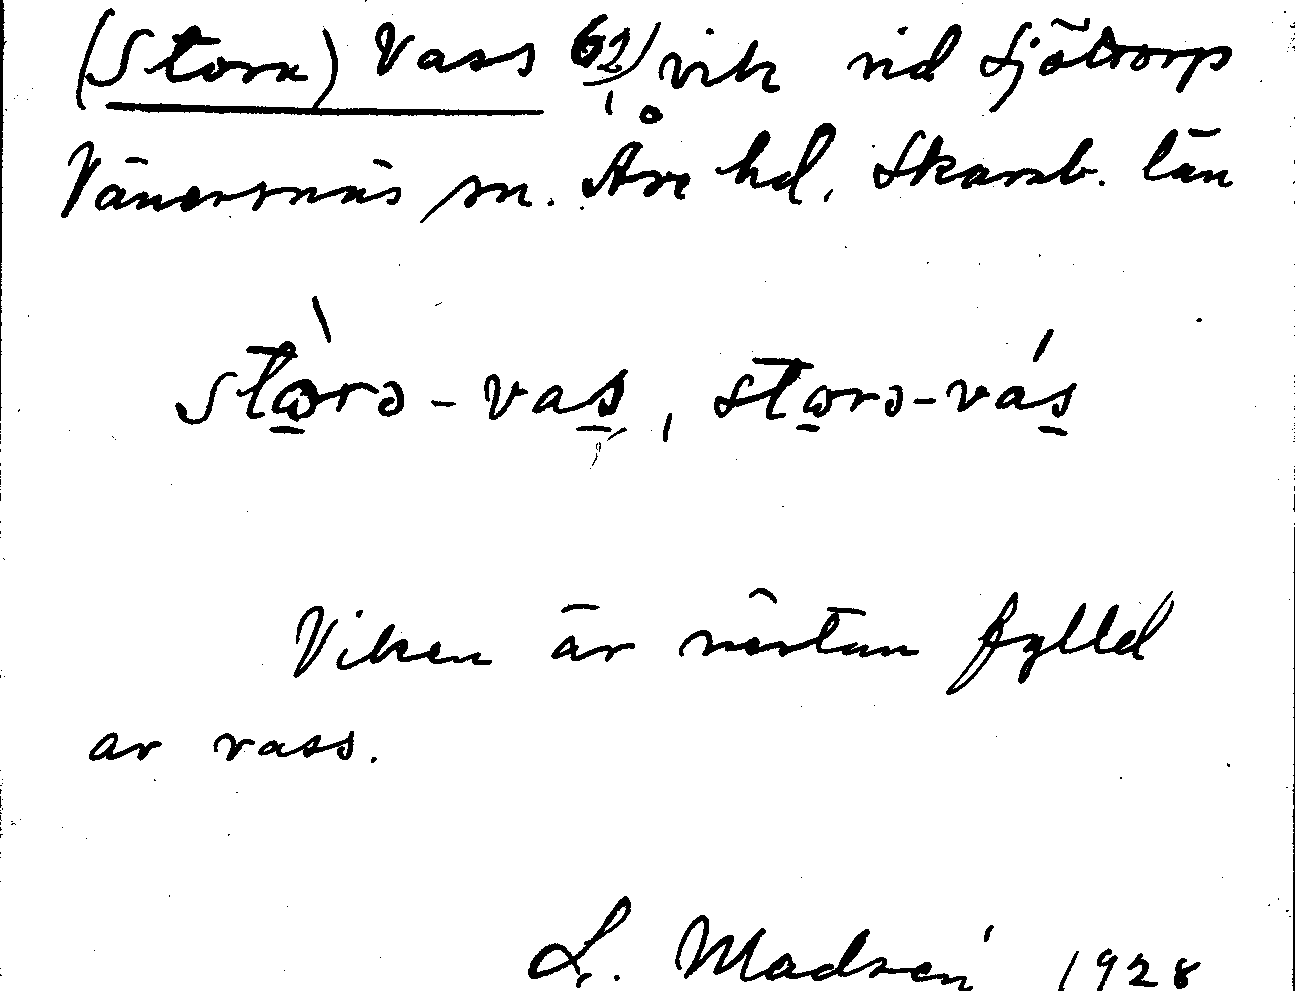 (Stora) Vass 62) vik vid Sjötorp
Vänersnäs sn. Åse hd. Skarab. län
stɷ̀rə-vas, stɷrə-vás
Viken är nästan fylld
av vass.
L. Madsén 1928